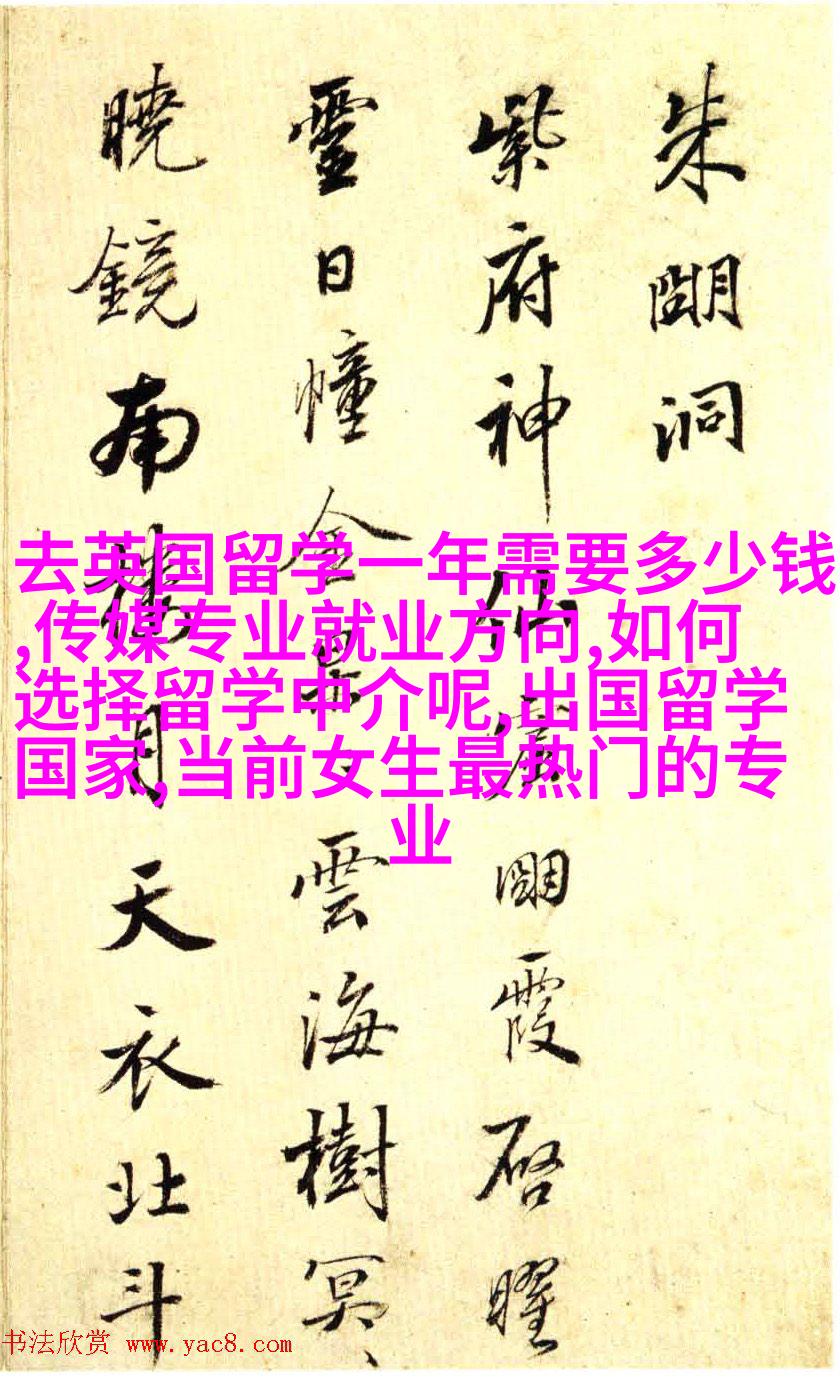 朱朙洞
紫府神仙府朙霞啓曜
靈日幢金景、雲海樹冥、
曉鏡南樓月天衣北斗
去英国留学一年需要多少钱
,传媒专业就业方向,如何
选择留学中介呢,出国留学
国家,当前女生最热门的专
业
书法欣赏 www.yac8.com